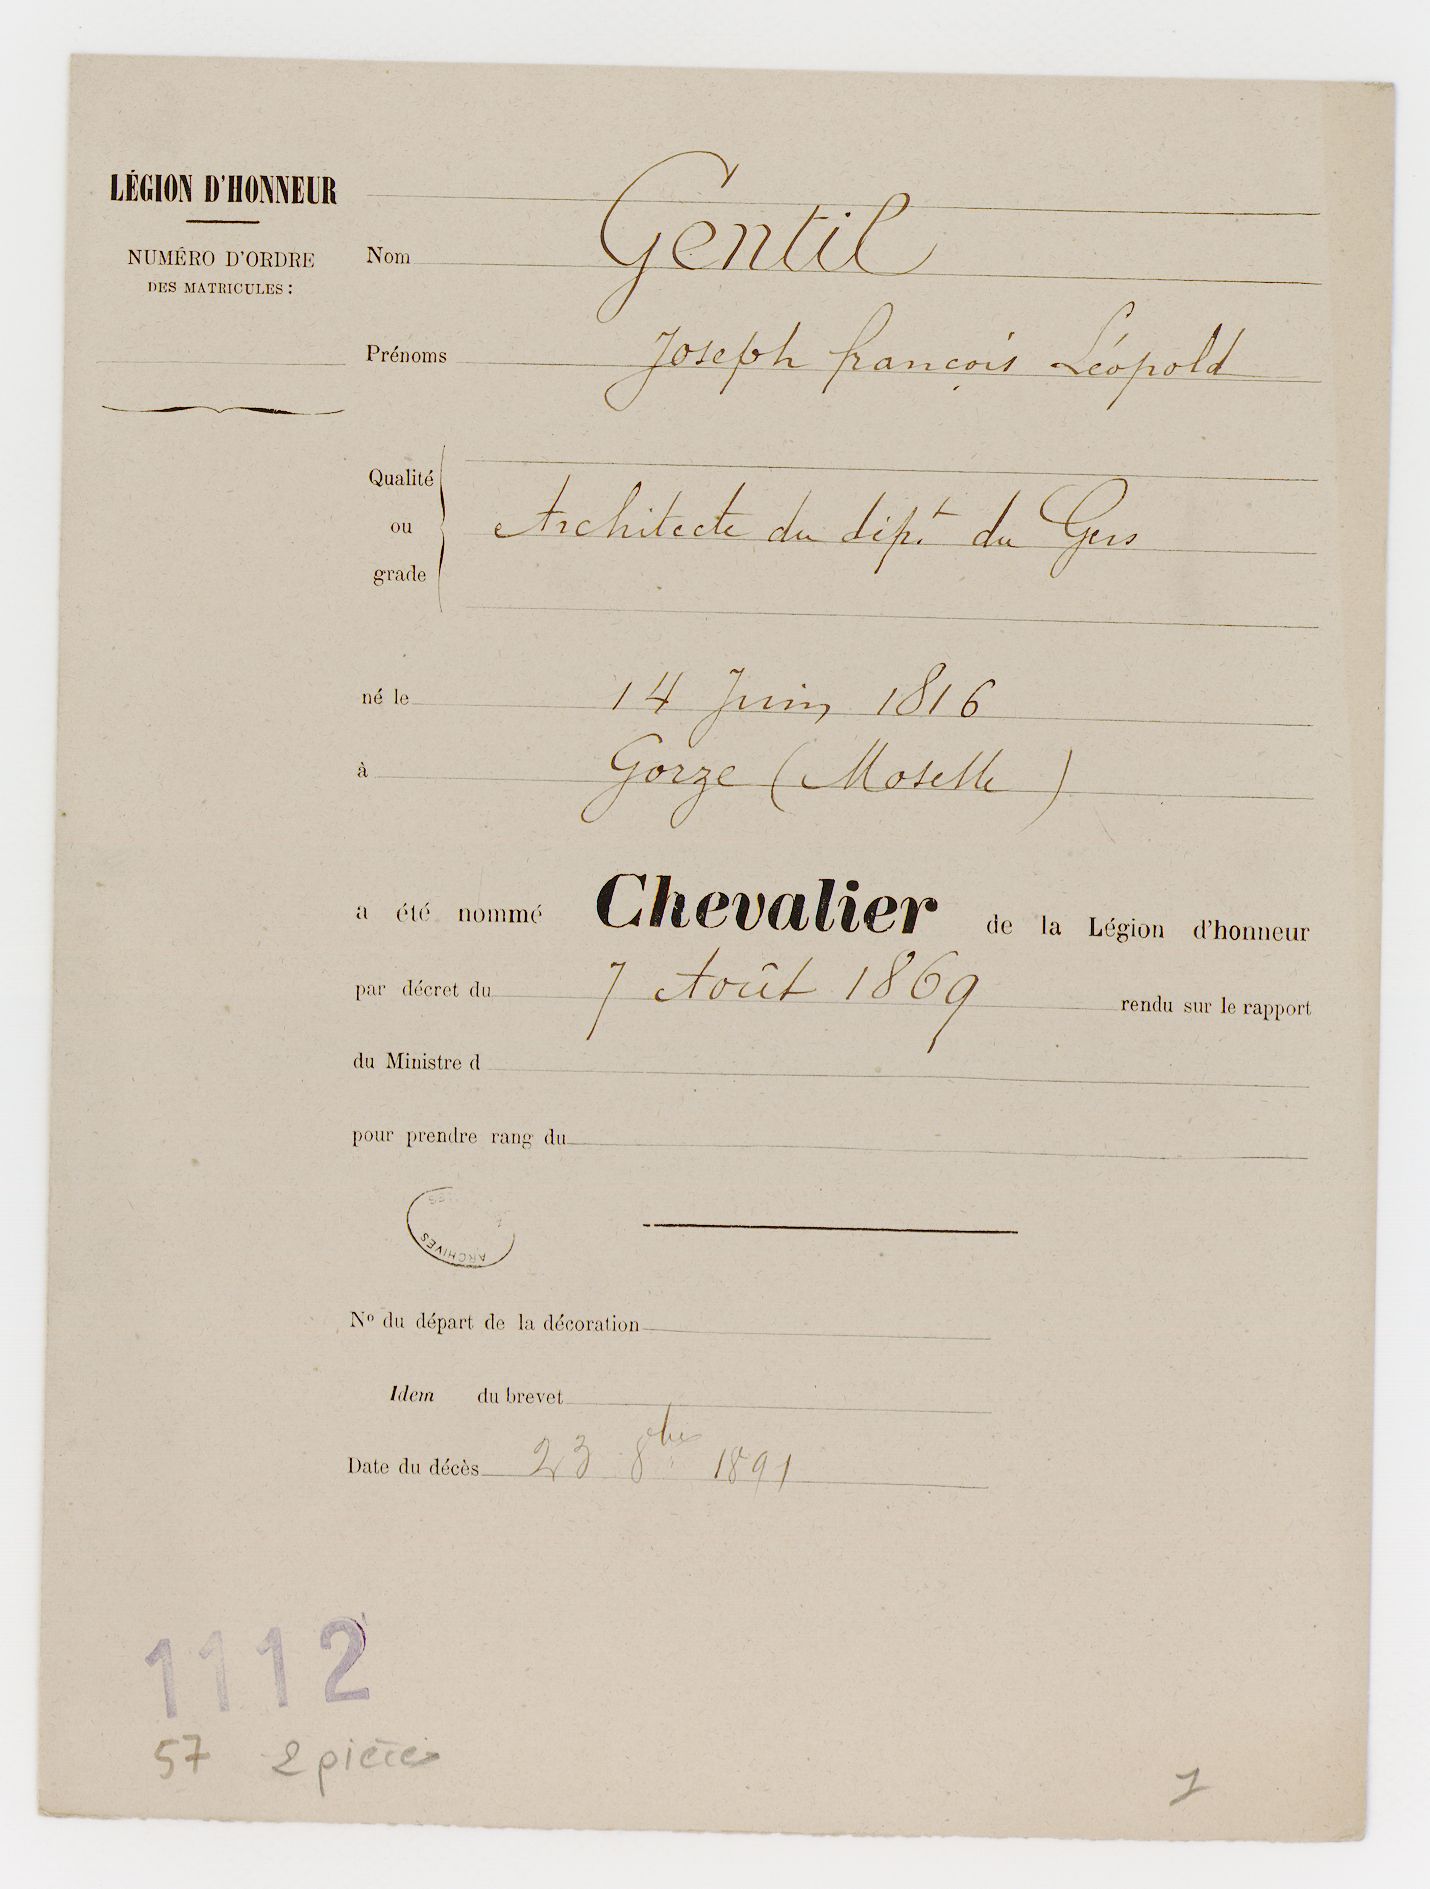 LÉGION D'HONNEUR
NUMÉRO D'ORDRE
DES MATRICULES :
Nom Gentil
Prénoms Joseph françois Léopold
Qualité
ou
grade
Architecte du dépt. du Gers
né le 14 Juin 1816
à Gorze (Moselle)
a été nommé Chevalier de la Légion d'honneur
par décret du 7 Août 1869 rendu sur le rapport
du Ministre d
pour prendre rang du
ARCHIVES
No du départ de la décoration
Idem du brevet
Date du décès 23 8bre 1891
1112
57 2 pièces
1